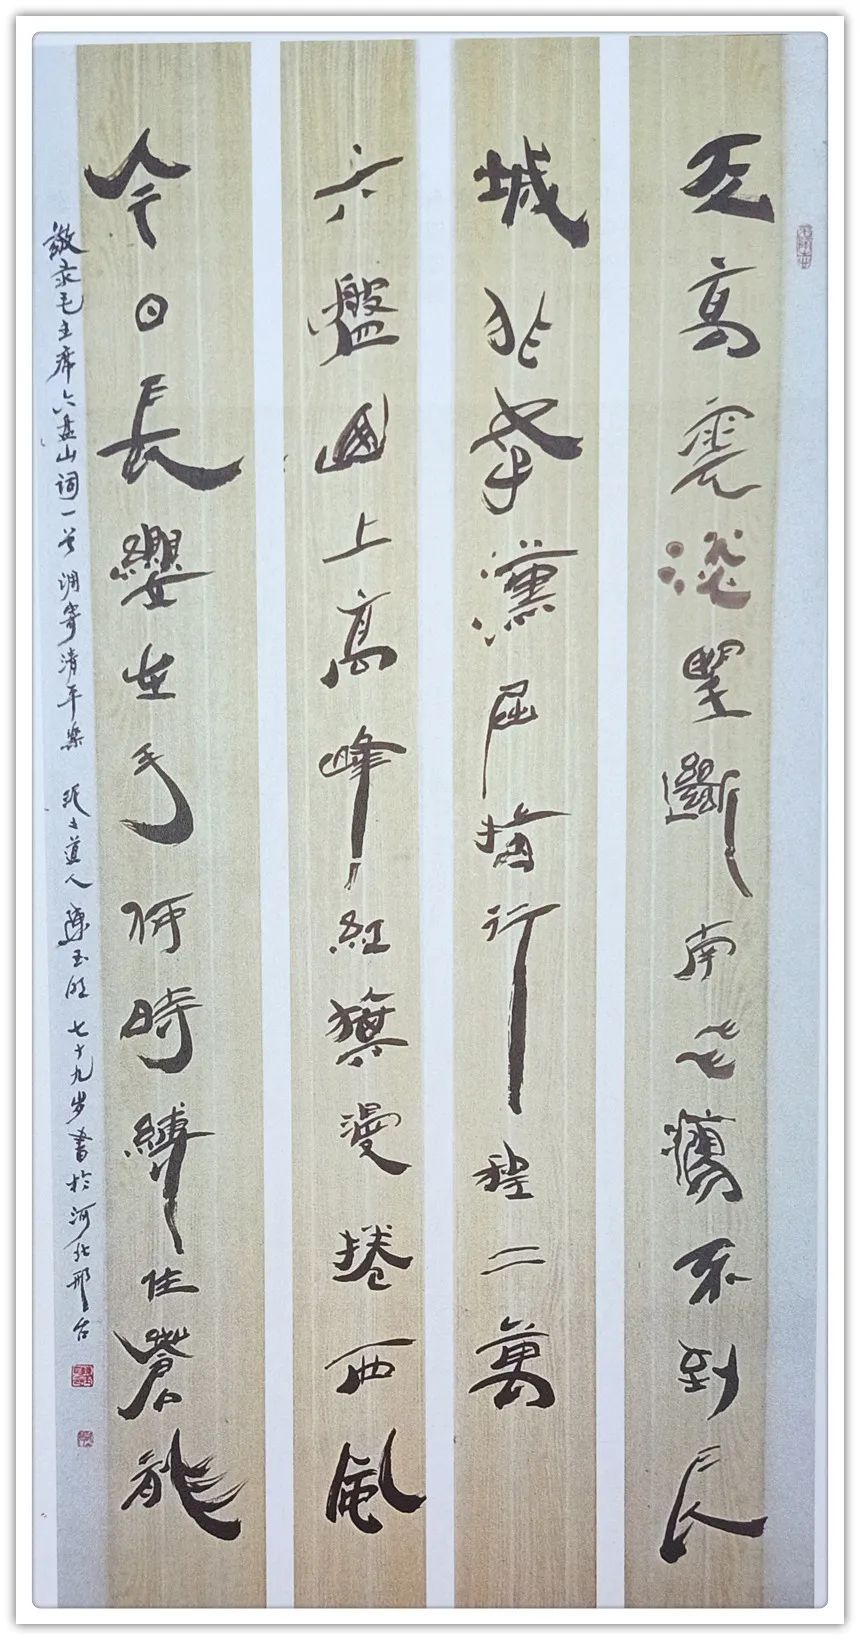 天高雲淡望斷南飛雁不到長
城非好漢屈指行程二萬
六盤山上高峰紅旗漫捲西風
今日長纓在手何時縛住蒼龍
敬录毛主席六盘山词一首调寄清平樂 泥土道人 陳玉 七十九岁書於河北邢台